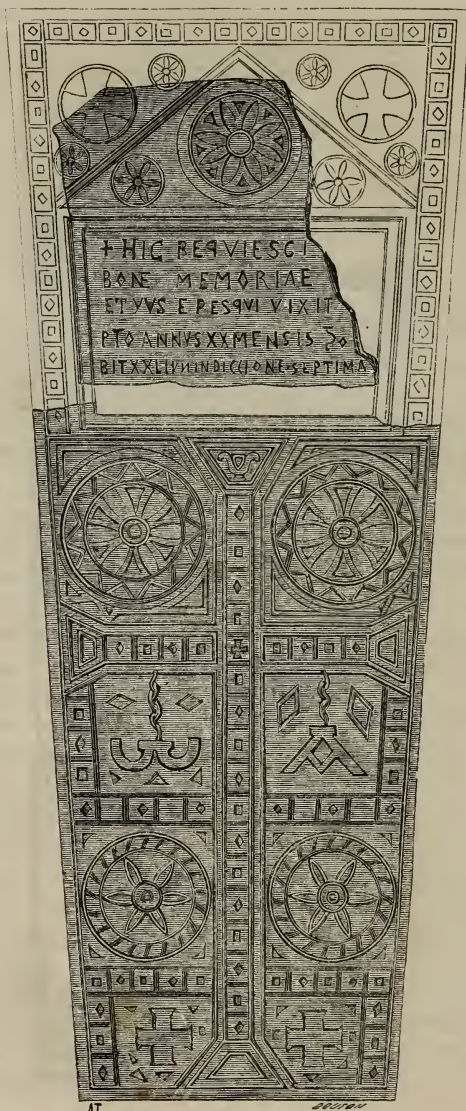 + HIC REQVIESCI
BONE MEMORIAE
ETYVS EPESQVI VIXIT
PTO ANNVS XX MENSIS
BIT XXLI INDICCIONE SEPTIMA
AT